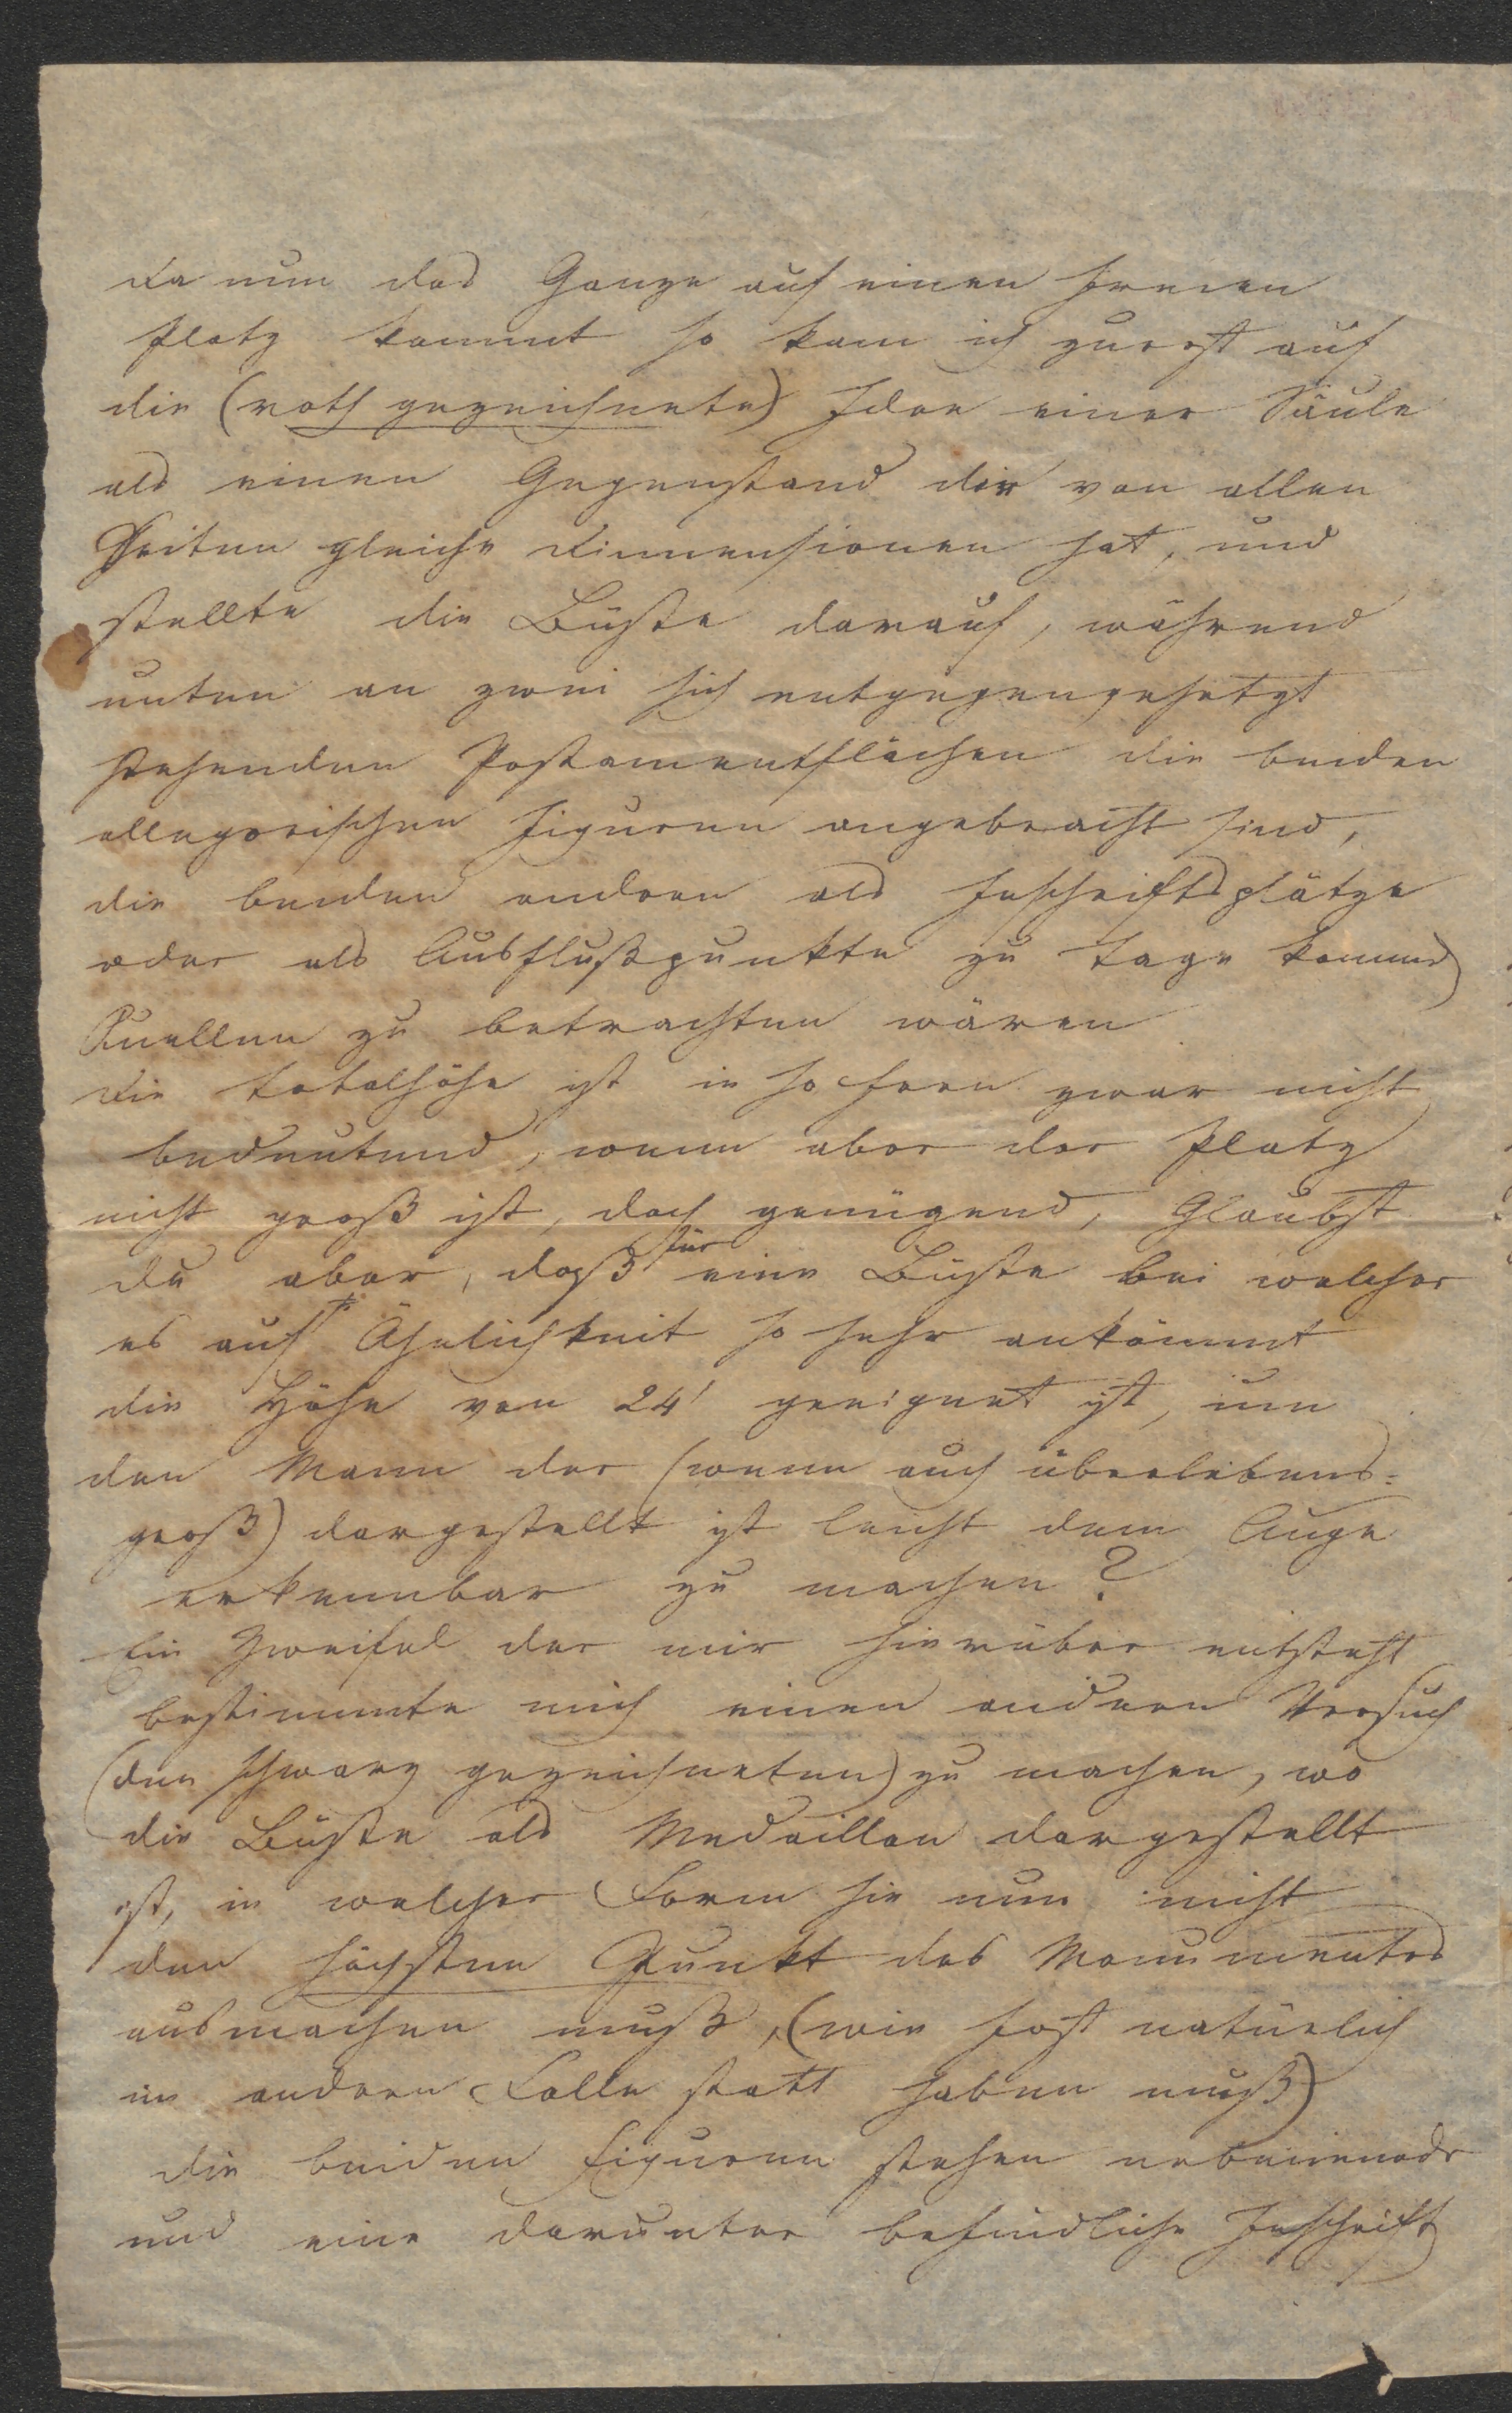 Da nun das Ganze auf einen freien
Platz kommt so kam ich zuerst auf
die (roth gezeichnete) Idee einer Säule
als einen Gegenstand der von allen
Seiten gleiche Dimensionen hat, und
stellte die Büste darauf, während
unten an zwei sich entgegengesetzt
stehenden Postamentflächen die beiden
allegorischen Figuren angebracht sind,
die beiden andern als Inschriftsplätze
oder als Ausflußpunkte zu Tage kommend
Quellen zu betrachten wären
Die Totalhöhe ist in so fern zwar nicht
bedeutend, wenn aber der Platz
nicht groß ist, doch genügend, Glaubst
du aber, daß für eine Büste bei welcher
es auf Ähnlichkeit so sehr ankömmt
die Höhe von 24' geeignet ist, um
den Mann der (wenn auch überlebens-
groß) dargestellt ist leicht dem Auge
erkennbar zu machen?
Ein Zweifel der mir hierüber entsteht
bestimmte mich einen andern Versuch
(den schwarz gezeichneten) zu machen, wo
die Büste als Medaillon dargestellt
ist, in welcher Form sie nun nicht
den höchsten Punkt des Monumentes
ausmachen muß, (wie fast natürlich
im andern Falle statt haben muß)
die beiden Figuren stehen nebeneinander
und eine darunter befindliche Inschrift